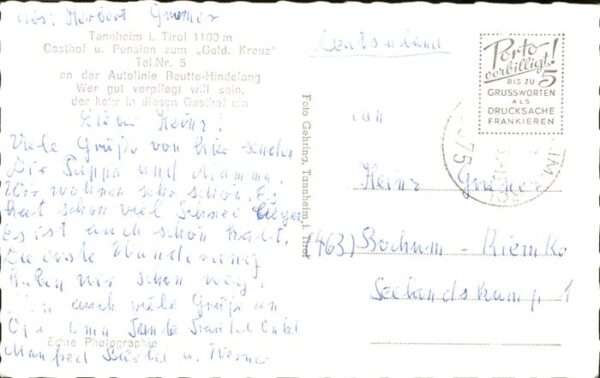 Abs. Herbert
Tannheim i. Tirol 1100 m
Gasthof u. Pension zum „Gold. Kreuz"
Tel. Nr. 5
an der Autolinie Reutte-Hindelang
Wer gut verpflegt will sein,
der kehr in diesen Gasthof ein
Lieber Heinz!
Viele Grüße von hier senden
Dir Pappa und Mamma.
Wir wohnen sehr schön. Es
hat schon viel Schnee
Es ist auch schön kalt.
Die erste Wanderung
haben wir schon weg.
Nun auch viele Grüße an
Opa Oma Tante
Manfred Bärbel u. Werner
Echte Photographie
Foto Gehring, Tannheim, i. Tirol
Porto
verbilligt!
BIS ZU 5
GRUSSWORTEN
ALS
DRUCKSACHE
FRANKIEREN
75
an
Heinz
(463) Bochum - Riemke
Seelandskamp 1